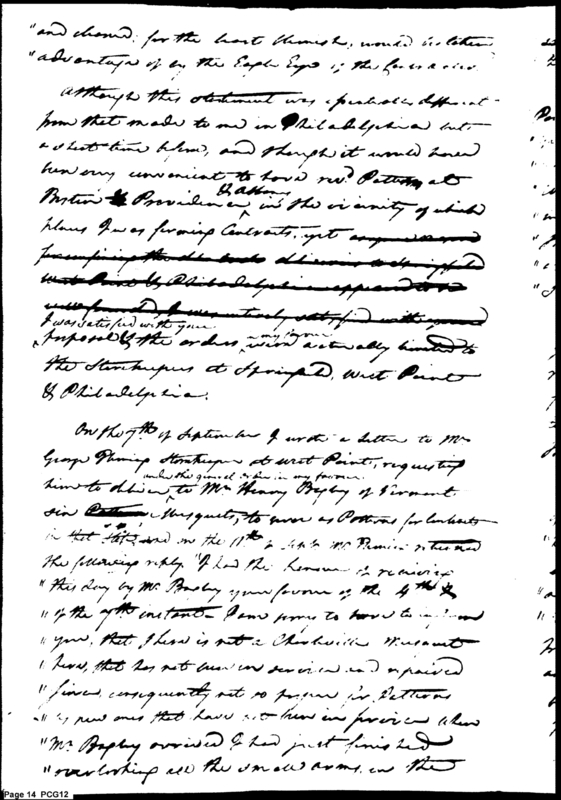 "and cleaned; for the least blemish, would be taken
"advantage of by the Eagle Eye of the
Although this statement was a particular different
from that made to me in Philadelphia but
a short time before, and though it would have
been very convenient to have rec'd Patterns at
Boston & Providence, & Albany in the vicinity of which
places I was forming Contracts, yet
West Point & Philadelphia appeared to
I was entirely satisfied with
I was satisfied with your
proposal, & the orders in my favour were actually limited to
the Storekeepers at Springfield, West Point
& Philadelphia.
On the 7th of September I wrote a letter to Mr
George Fleming Storekeeper at West Point, requesting
him to deliver, under the general orders in my favour to Mr Henry Bagley of Vermont
six Muskets, to serve as Patterns for Contracts
in that State, and on the 11th of Septr Mr Fleming returned
the following reply "I had the honour of receiving
"this day by Mr Bagley your favour of the
"of the 7th instant. I am sorry to have to inform
"you, that there is not a Charleville Musquet
"here, that has not been in service and repaired
"since, consequently not so proper for Patterns
"as new ones that have not been in service when
"Mr Bagley arrived I had just finished
"overlooking all the small arms in the
Page 14 PCG12